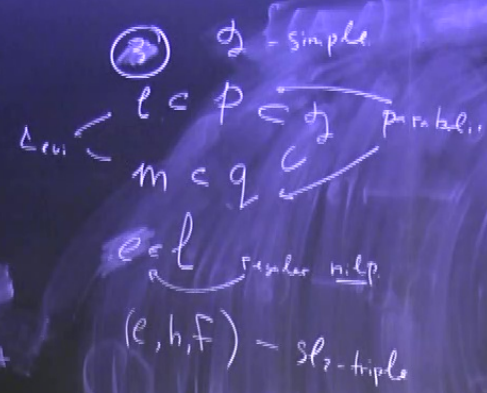 ③ g - simple
l ⊂ p ⊂ g parabolic
Levi
m ⊂ q ⊂
e ∈ l regular nilp.
(e, h, f) - sl₂-triple